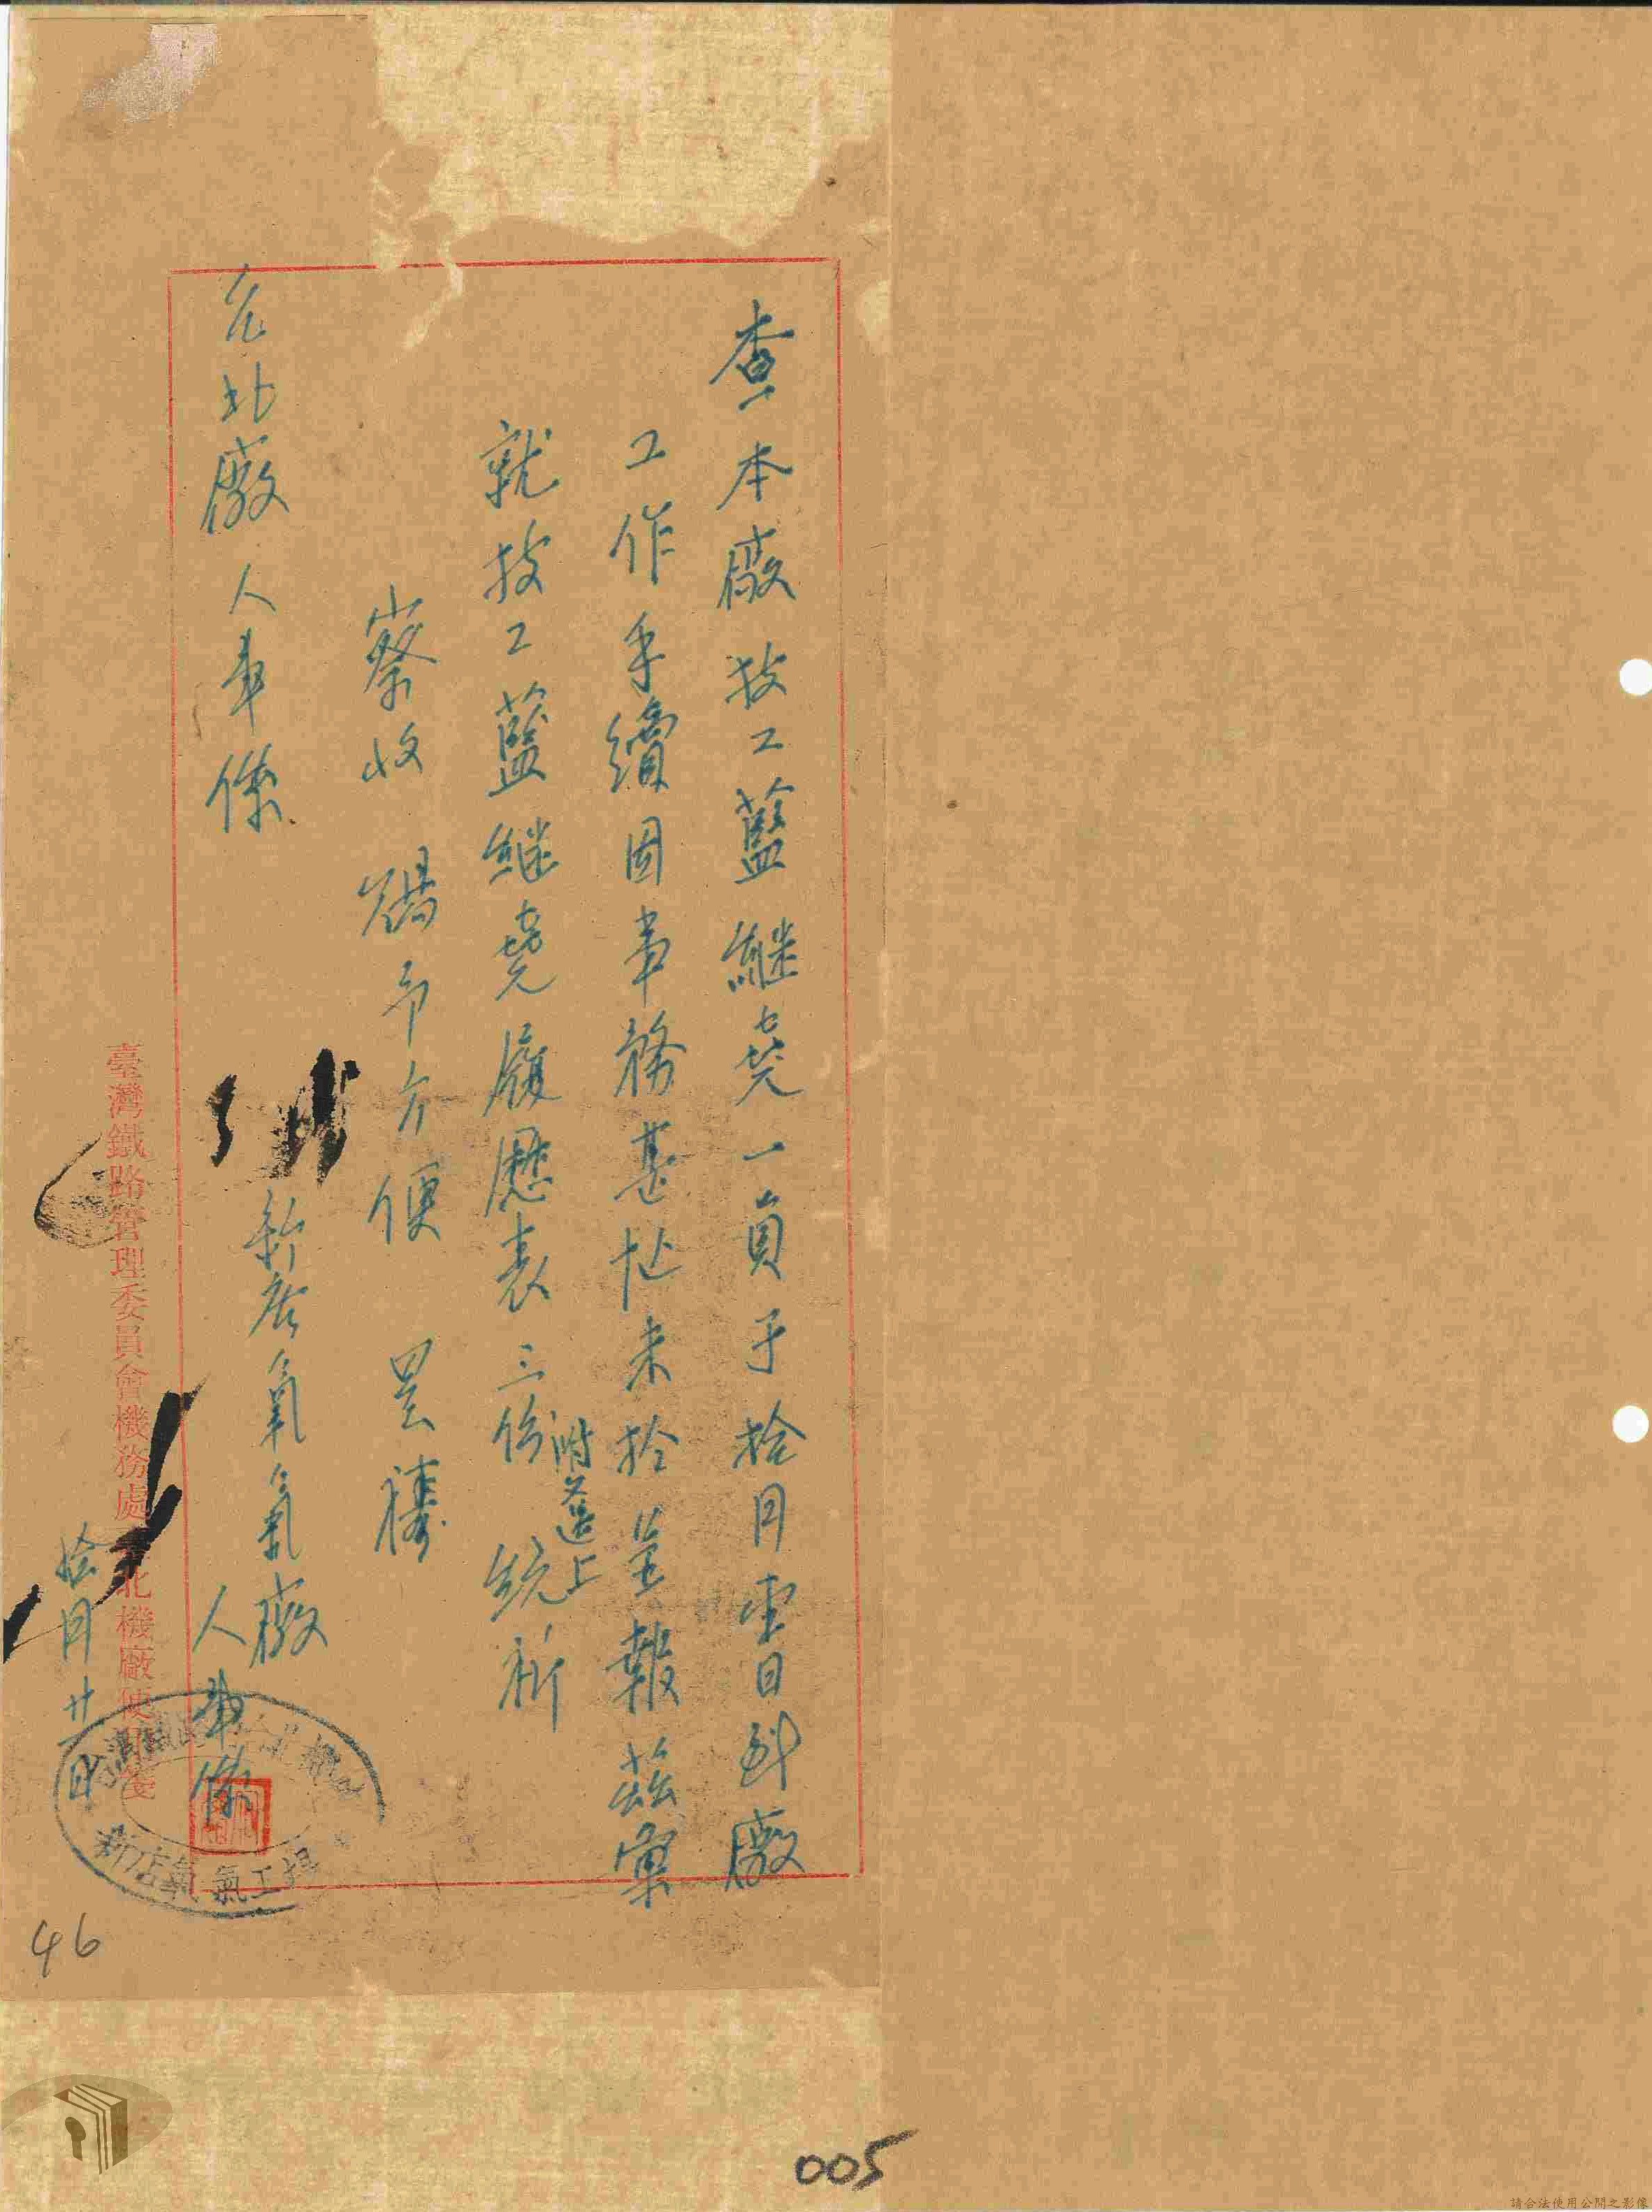 查本廠技工藍継尭一員于拾月壹日到廠
工作手續因事務甚忙未於呈報茲彙
就技工藍継尭履歷表三份附文送上統祈
察收賜予介便是禱
台北廠人事係
新店氧氣廠
人事係
拾月廿日
臺灣鐵路管理委員會機務處臺北機廠便用箋
新店氧氣工場
46
005
請合法使用公開之影像